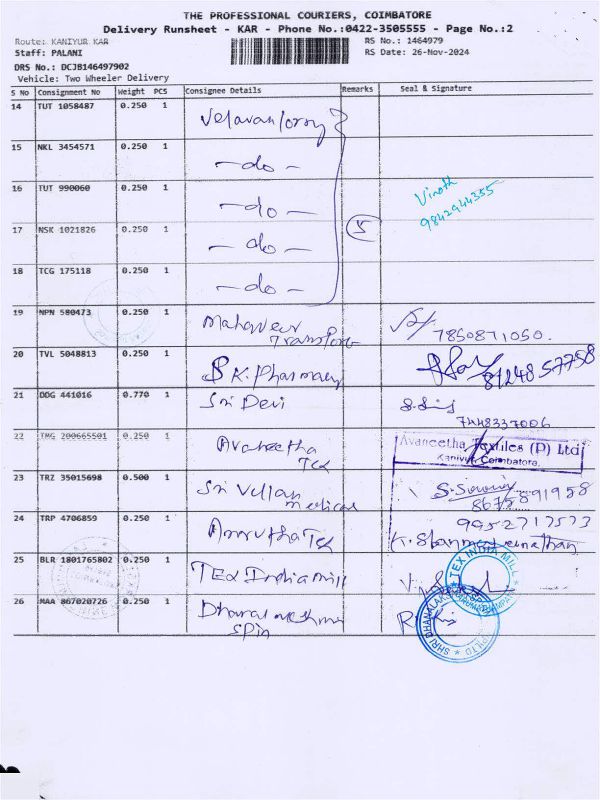 THE PROFESSIONAL COURIERS, COIMBATORE
Delivery Runsheet - KAR - Phone No.:0422-3505555 - Page No.:2
Route: KANIYUR KAR RS No.: 1464979
Staff: PALANI RS Date: 26-Nov-2024
DRS No.: DCJB146497902
Vehicle: Two Wheeler Delivery
S No Consignment No Weight PCS Consignee Details Remarks Seal & Signature
14 TUT 1058487 0.250 1 Velavan lorry
15 NKL 3454571 0.250 1 -do-
16 TUT 990060 0.250 1 -do- Vinoth
9842944355
17 NSK 1021826 0.250 1 -do- 5
18 TCG 175118 0.250 1 -do-
19 NPN 580473 0.250 1 Mahaveer
Transport 7850871050.
20 TVL 5048813 0.250 1 S K. Pharmacy 8124857758
21 DDG 441016 0.770 1 Sri Devi
7448337006
22 TMG 200665501 0.250 1 Avaneetha Avaneetha Textiles (P) Ltd
Tex Kaniyur, Coimbatore.
23 TRZ 35015698 0.500 1 Sri Vellan
medical 8675891958
24 TRP 4706859 0.250 1 Amrutha Tex 9952717573
25 BLR 1801765802 0.250 1 TEx India mill TEX INDIA MILL
26 MAA 867020726 0.250 1 Dhanalakshmi
Spin